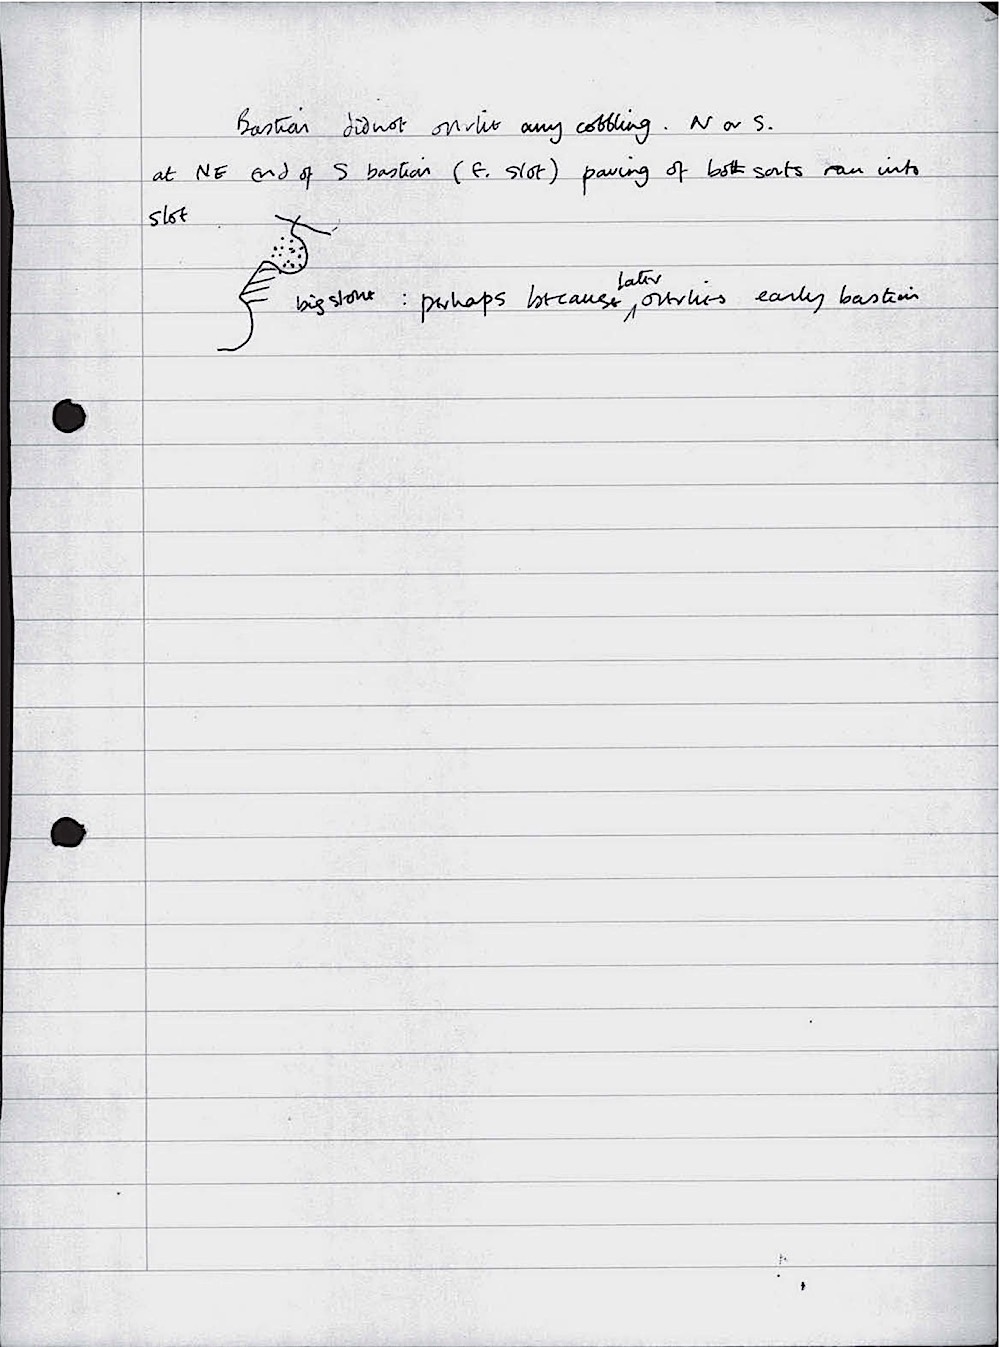 Bastion did not overlie any cobbling. N or S.
at NE end of S bastion (E. slot) paving of both sorts ran into
slot
later
big stone : perhaps because ⁁ overlies early bastion